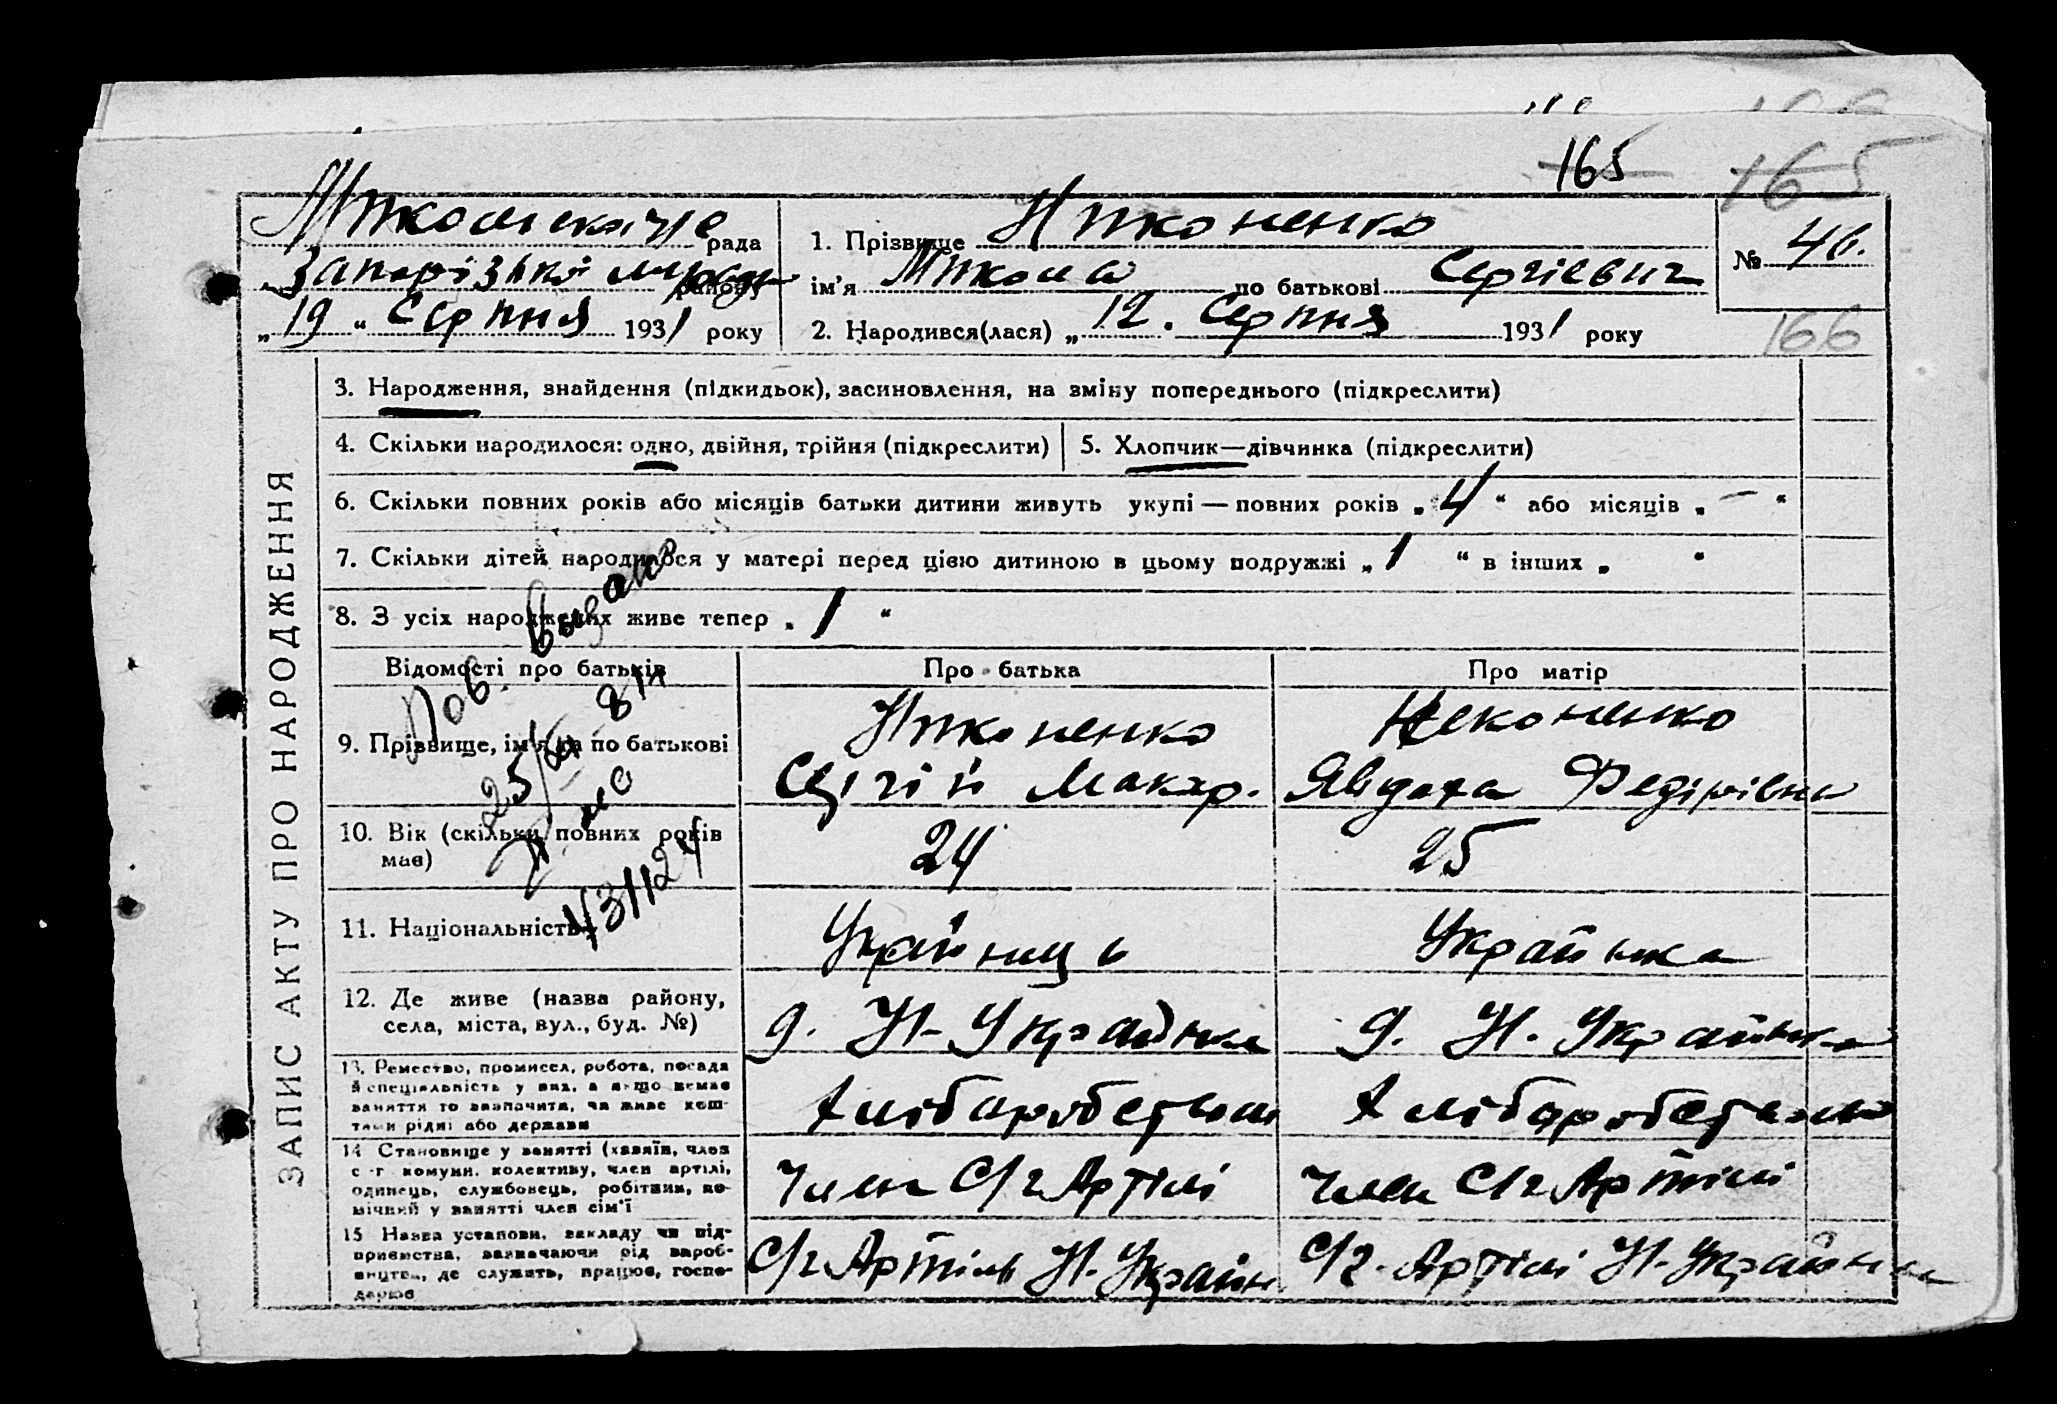 165 165
Микольська рада
Запорізької міськради району
„ 19 “ Серпня 1931 року
1. Прізвище Никоненко
ім’я Микола по батькові Сергієвич
2. Народився(лася) „ 12. Серпня 1931 року
№ 46.
166
ЗАПИС АКТУ ПРО НАРОДЖЕННЯ
3. Народження, знайдення (підкидьок), засиновлення, на зміну попереднього (підкреслити)
4. Скільки народилося: одно, двійня, трійня (підкреслити) 5. Хлопчик—дівчинка (підкреслити)
6. Скільки повних років або місяців батьки дитини живуть укупі — повних років „ 4 “ або місяців „ — “
7. Скільки дітей народилося у матері перед цією дитиною в цьому подружжі „ 1 “ в інших „ “
8. З усіх народжених живе тепер „ 1 “
Пов. выдано
25/ 81
V
131124
Відомості про батьків Про батька Про матір
9. Прізвище, ім’я та по батькові
Никоненко
Сергій Макар.
Никоненко
Явдоха Федірівна
10. Вік (скільки повних років має) 24 25
11. Національність Українець Українка
12. Де живе (назва району, села, міста, вул., буд. №)
д. Н-Українка
д. Н. Українка
13. Ремество, промисел, робота, посада й спеціяльність у них, а якщо немає заняття то зазначити, чи живе коштами рідні або держави
Хліборобством
Хліборобством
14. Становище у занятті (хазяїн, член с-г комуни, колективу, член артілі, одинець, службовець, робітник, помічний у занятті член сім’ї
Член С/г Артілі
Член С/г Артілі
15. Назва установи, закладу чи підприємства, зазначаючи рід виробництва, де служить, працює, господарює
С/г Артіль Н-Україн
С/г. Артілі Н-Українка